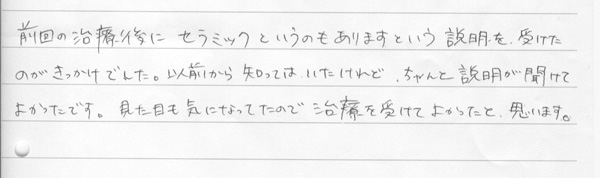 前回の治療後にセラミックというのもありますという説明を、受けた
のがきっかけでした。以前から知ってはいたけれど、ちゃんと説明が聞けて
よかったです。見た目も気になってたので治療を受けてよかったと、思います。